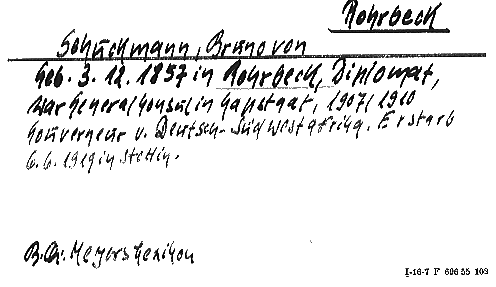 Rohrbeck
Schuckmann, Bruno von
Geb. 3. 12. 1857 in Rohrbeck, Diplomat,
war Generalkonsul in Kapstaat, 1907/1910
Gouverneur v. Deutsch-Südwestafrika. Er starb
6. 6. 1919 in Stettin.
Meyers Lexikon
I-16-7 F 696 55 103